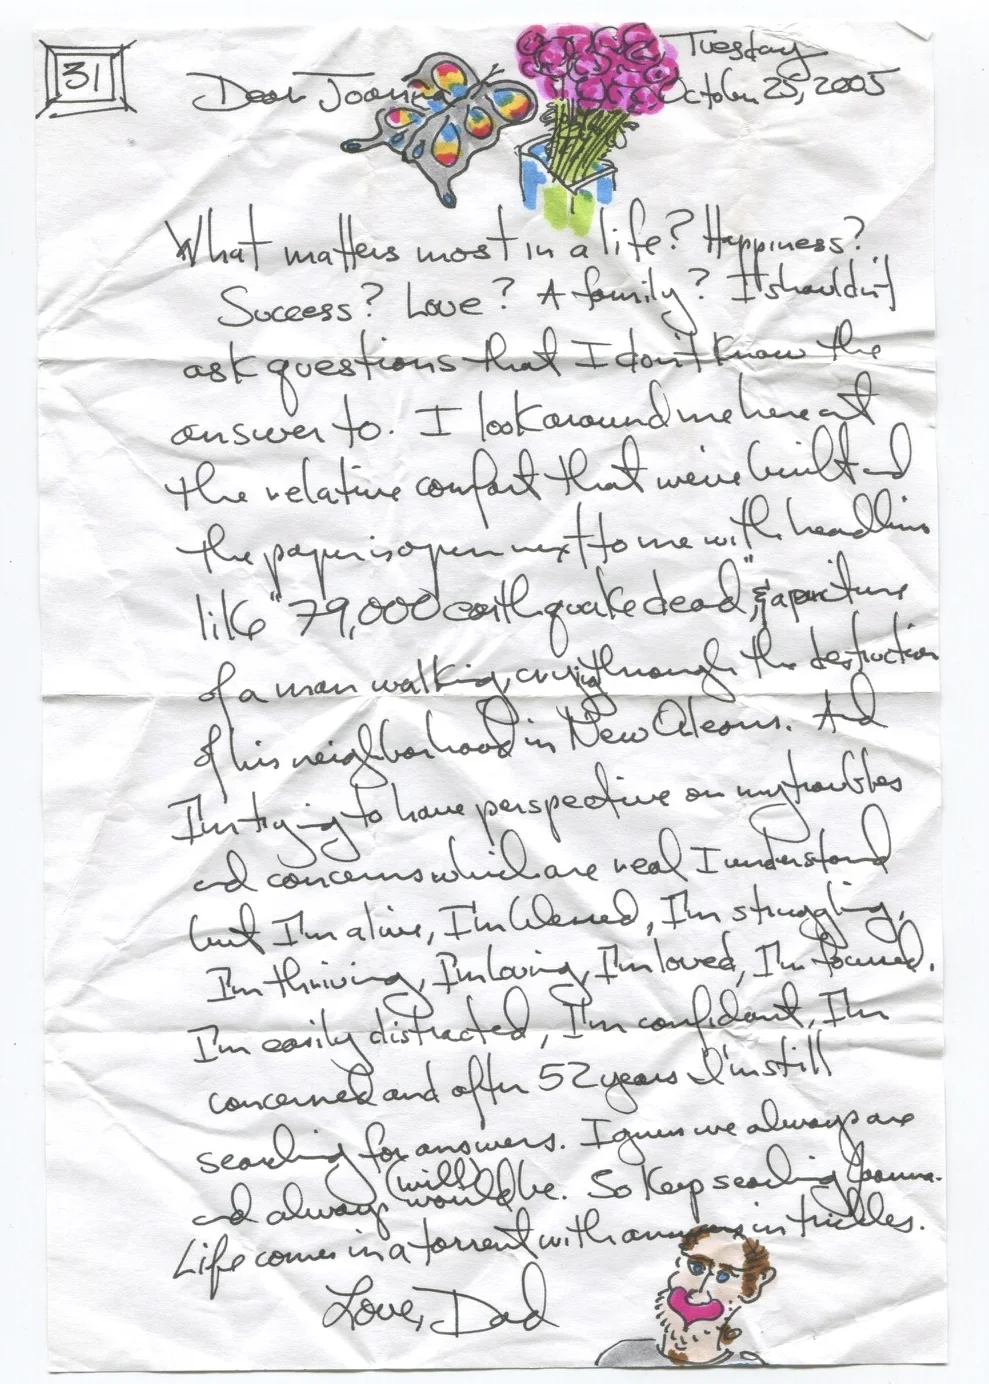 31
Tuesday
Dear Joanna
October 25, 2005
What matters most in a life? Happiness?
Success? Love? A family? I shouldn't
ask questions that I don't know the
answer to. I look around me here at
the relative comfort that we've built and
the paper is open next to me with headlines
like "79,000 earthquake dead", & a picture
of a man walking, crying through the destruction
of his neighborhood in New Orleans. And
I'm trying to have perspective on my troubles
and concerns which are real I understand
but I'm alive, I'm blessed, I'm struggling,
I'm thriving, I'm loving, I'm loved, I'm focused.
I'm easily distracted, I'm confident, I'm
concerned and after 52 years I'm still
searching for answers. I guess we always are
and always would (will) be. So keep searching Joanna.
Life comes in a torrent with answers in trickles.
Love, Dad